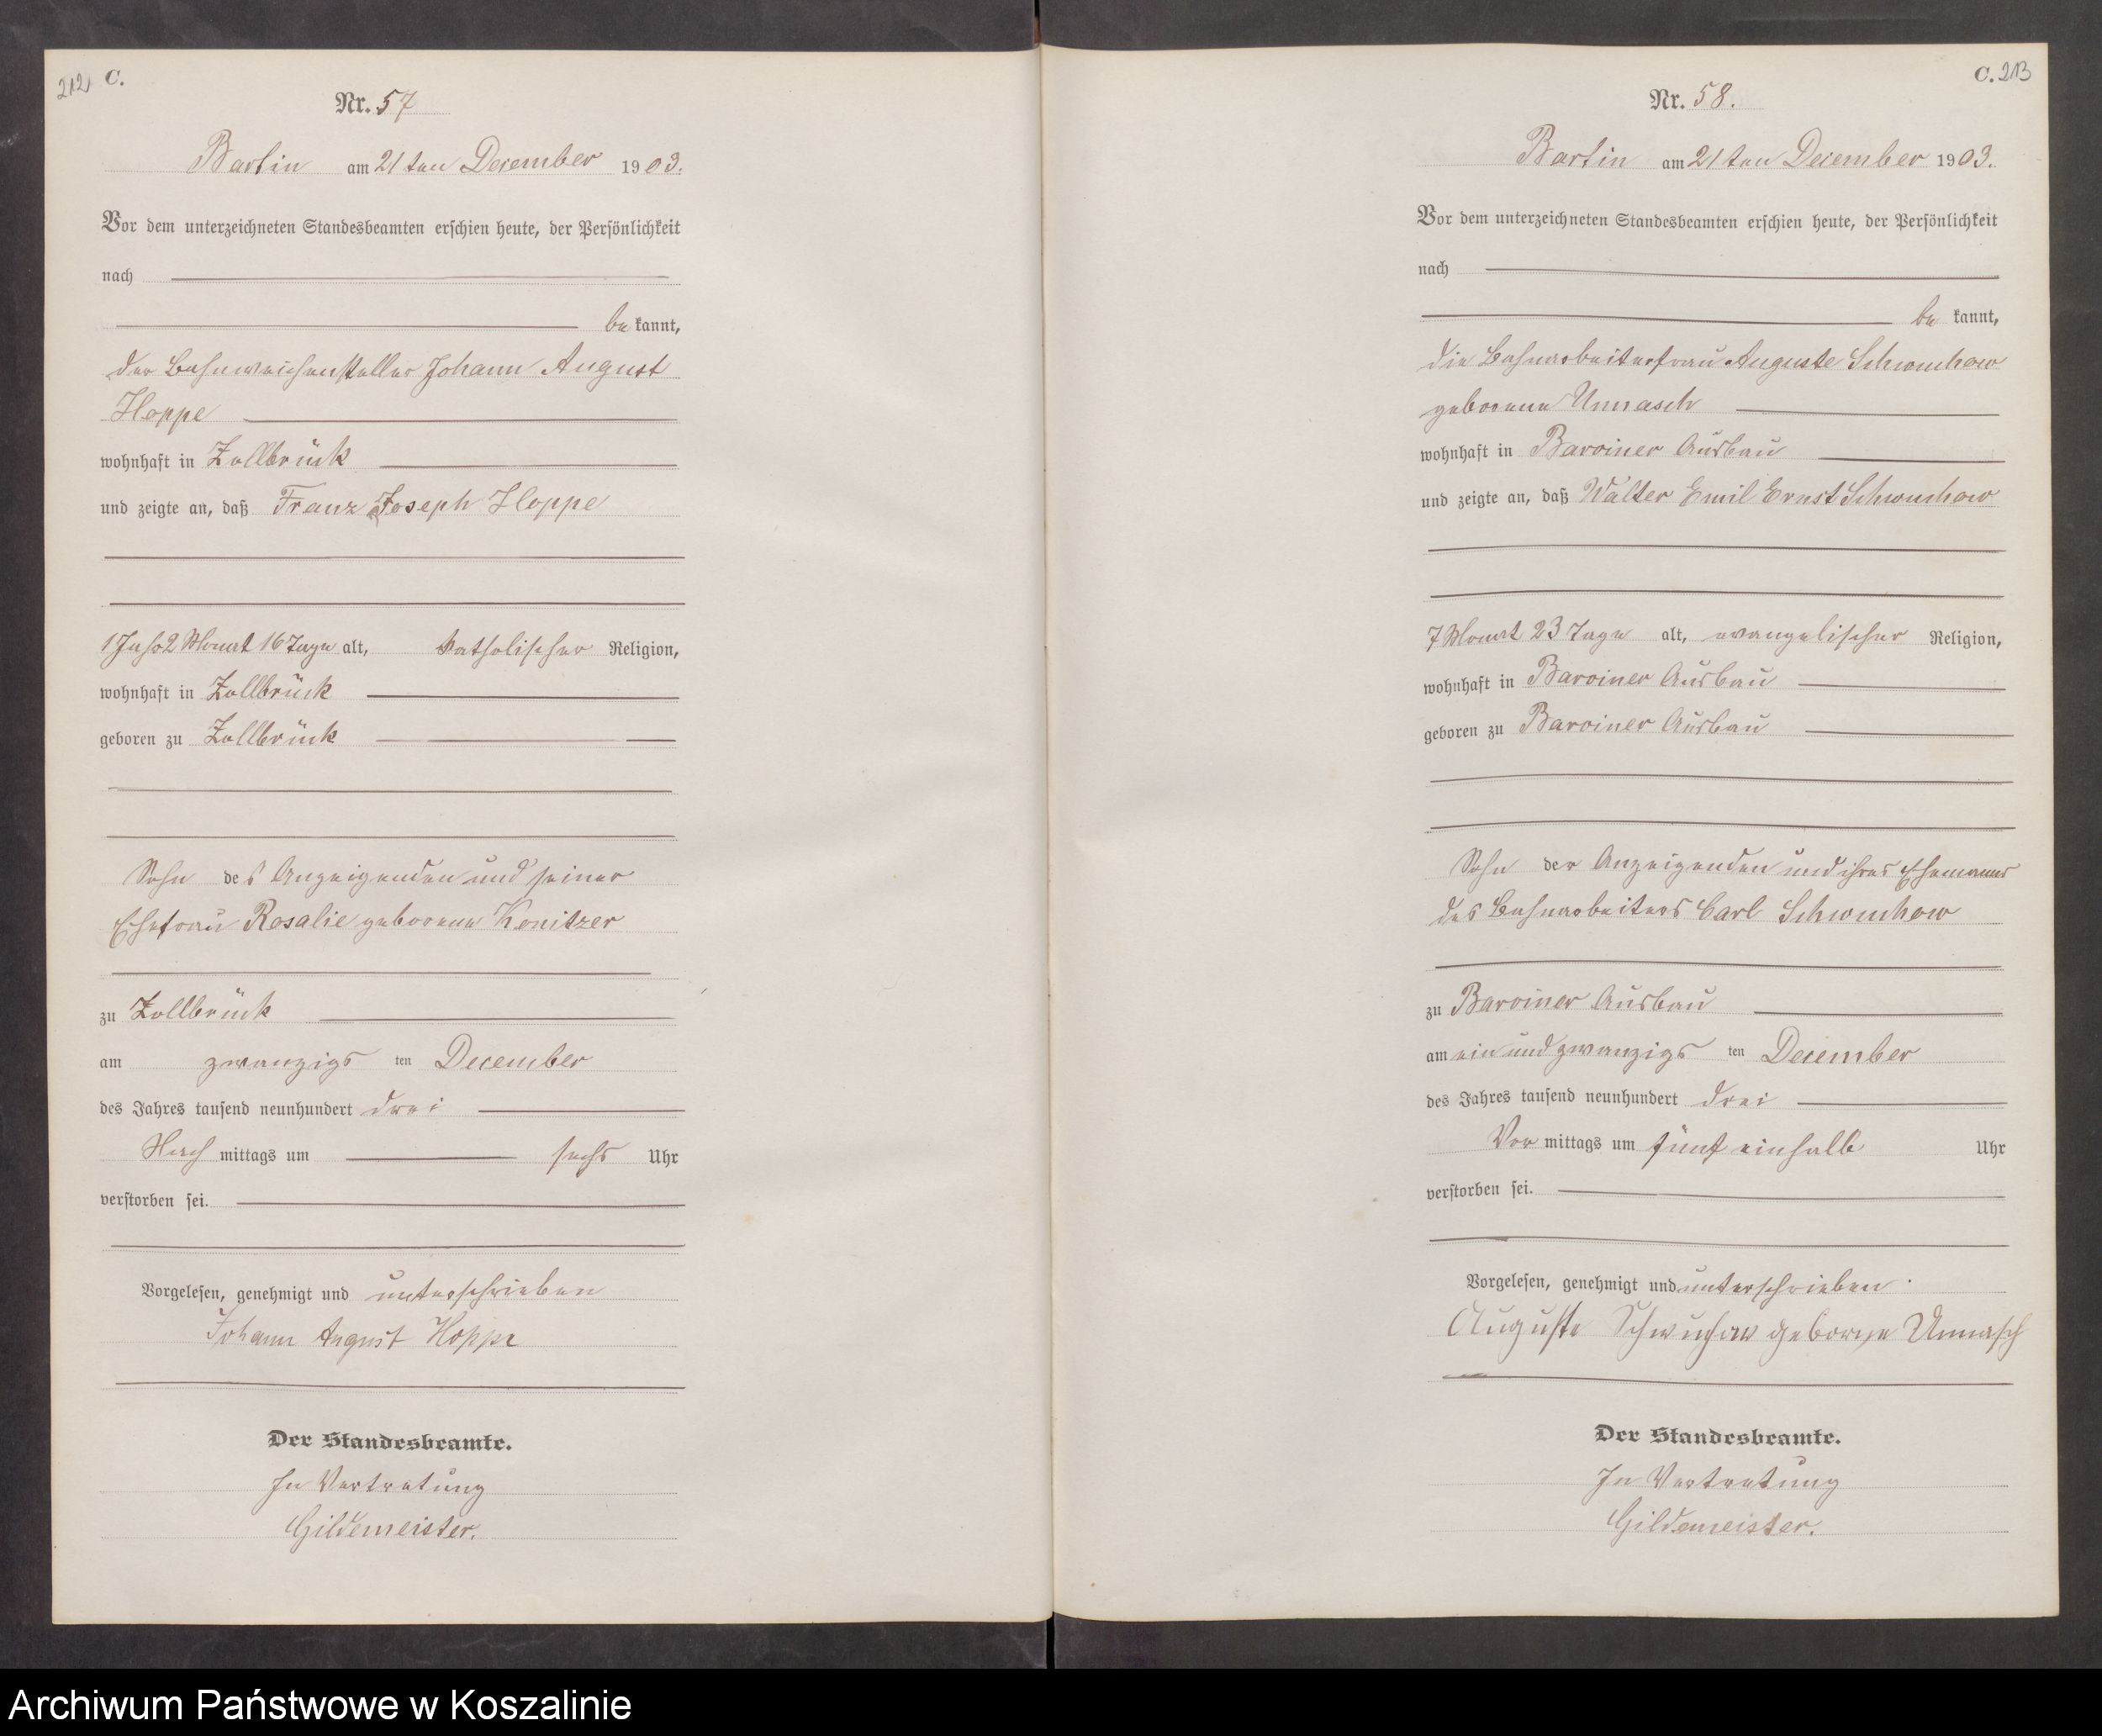 212 C.
Nr. 57
Bartin am 21ten December 1903.
Vor dem unterzeichneten Standesbeamten erschien heute, der Persönlichkeit
nach
bekannt,
der Bahnweichensteller Johann August
Hoppe
wohnhaft in Zollbrück
und zeigte an, daß Franz Joseph Hoppe
1 Jahr 2 Monat 16 Tage alt, katholischer Religion,
wohnhaft in Zollbrück
geboren zu Zollbrück
Sohn des Anzeigenden und seiner
Ehefrau Rosalie geborene Konitzer
zu Zollbrück
am zwanzigsten December
des Jahres tausend neunhundert drei
Nachmittags um sechs Uhr
verstorben sei.
Vorgelesen, genehmigt und unterschrieben
Johann August Hoppe
Der Standesbeamte.
In Vertretung
Gildemeister.
C. 213
Nr. 58.
Bartin am 21ten December 1903.
Vor dem unterzeichneten Standesbeamten erschien heute, der Persönlichkeit
nach
bekannt,
die Bahnarbeiterfrau Auguste Schwuchow
geborene Unnasch
wohnhaft in Barviner Ausbau
und zeigte an, daß Walter Emil Ernst Schwuchow
7 Monat 23 Tage alt, evangelischer Religion,
wohnhaft in Barviner Ausbau
geboren zu Barviner Ausbau
Sohn der Anzeigenden und ihres Ehemannes
des Bahnarbeiters Carl Schwuchow
zu Barviner Ausbau
am einundzwanzigsten December
des Jahres tausend neunhundert drei
Vormittags um fünf einhalb Uhr
verstorben sei.
Vorgelesen, genehmigt und unterschrieben.
Auguste Schwuchow geborne Unnasch
Der Standesbeamte.
In Vertretung
Gildemeister.
Archiwum Państwowe w Koszalinie